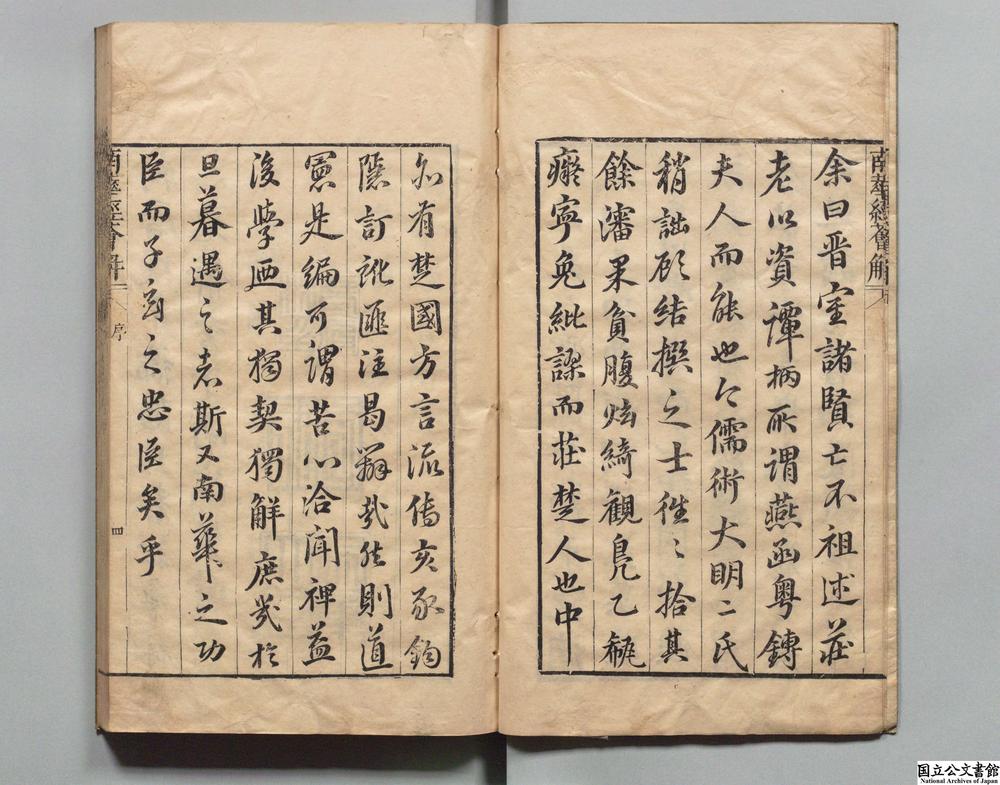 余曰晋室諸賢亡不祖述莊
老以資譚柄所謂燕函粤鏄
夫人而能也今儒術大明二氏
稍詘顧結撰之士徃〻拾其
餘瀋果貧腹炫綺觀鳧乙
寧免紕謬而莊楚人也中
有楚國方言流傳亥豕鈎
隱訂訛匪注曷哉然則道
是編可謂苦心洽聞裨益
後學廼其獨契獨解庶幾於
旦暮遇之者斯又南華之功
臣而子玄之忠臣矣乎
南華經薈解
序
南華經薈解
序
四
国立公文書館
National Archives of Japan